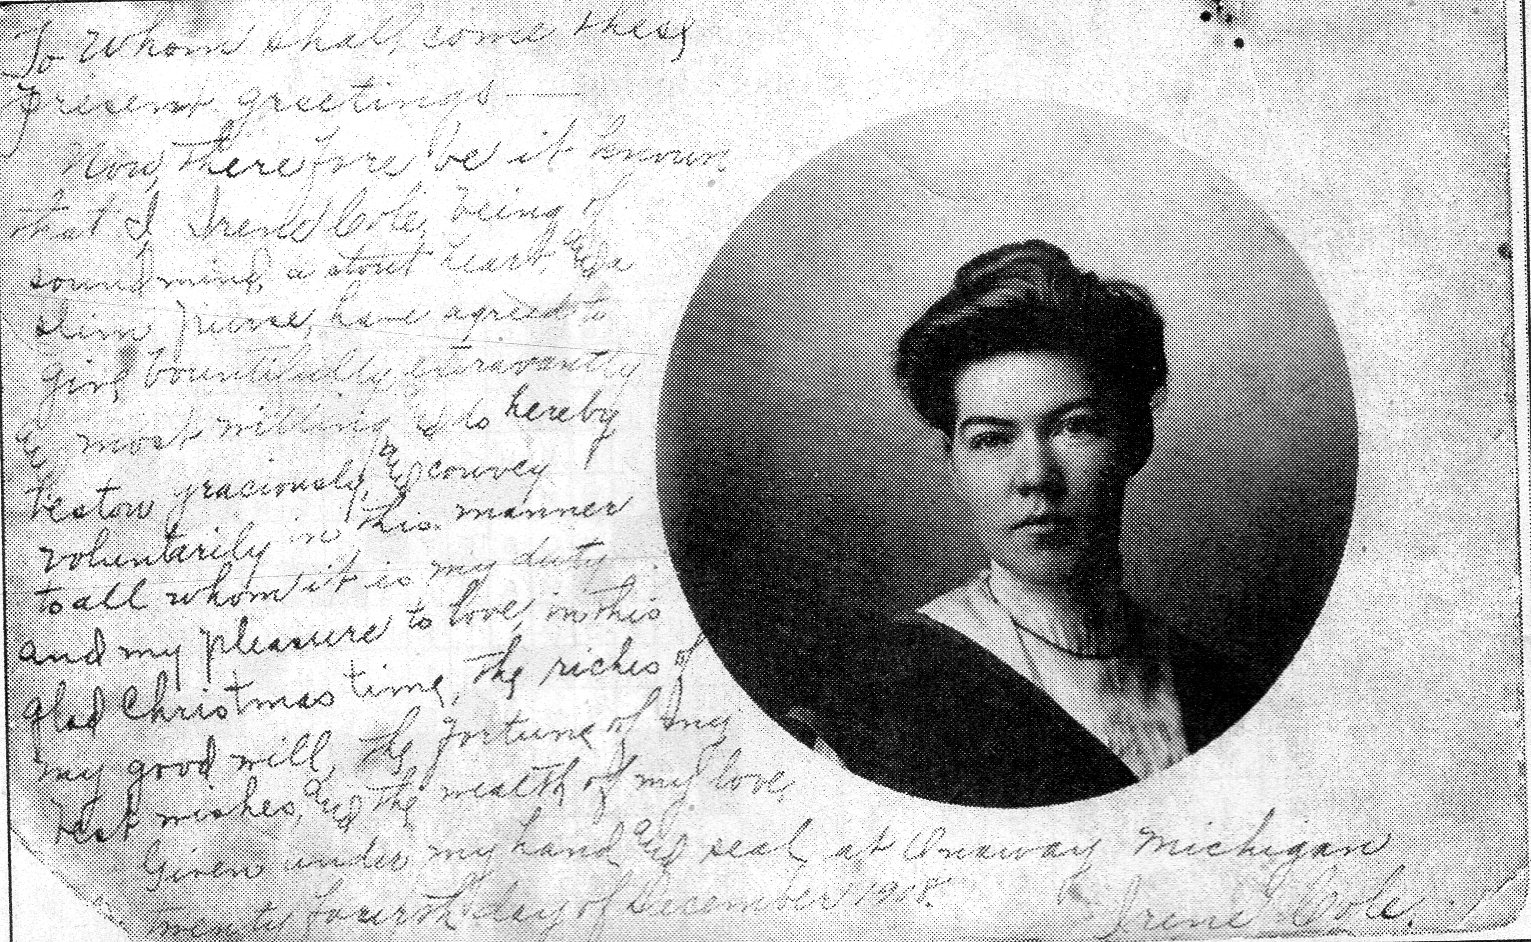 To Whom shall come these
present greetings —
Now, therefore be it known
that I Irene Cole, being of
sound mind, a stout heart, and a
slim purse, have agreed to
give bountifully, extravantly
and most willing and do hereby
bestow graciously, and convey
voluntarily in this manner
to all whom it is my duty
and my pleasure to love, in this
glad Christmas time, the riches of
my good will, the fortune of my
best wishes, and the wealth of my love,
Given under my hand and seal at Onaway Michigan
twenty fourth day of December 1908.
Irene Cole.